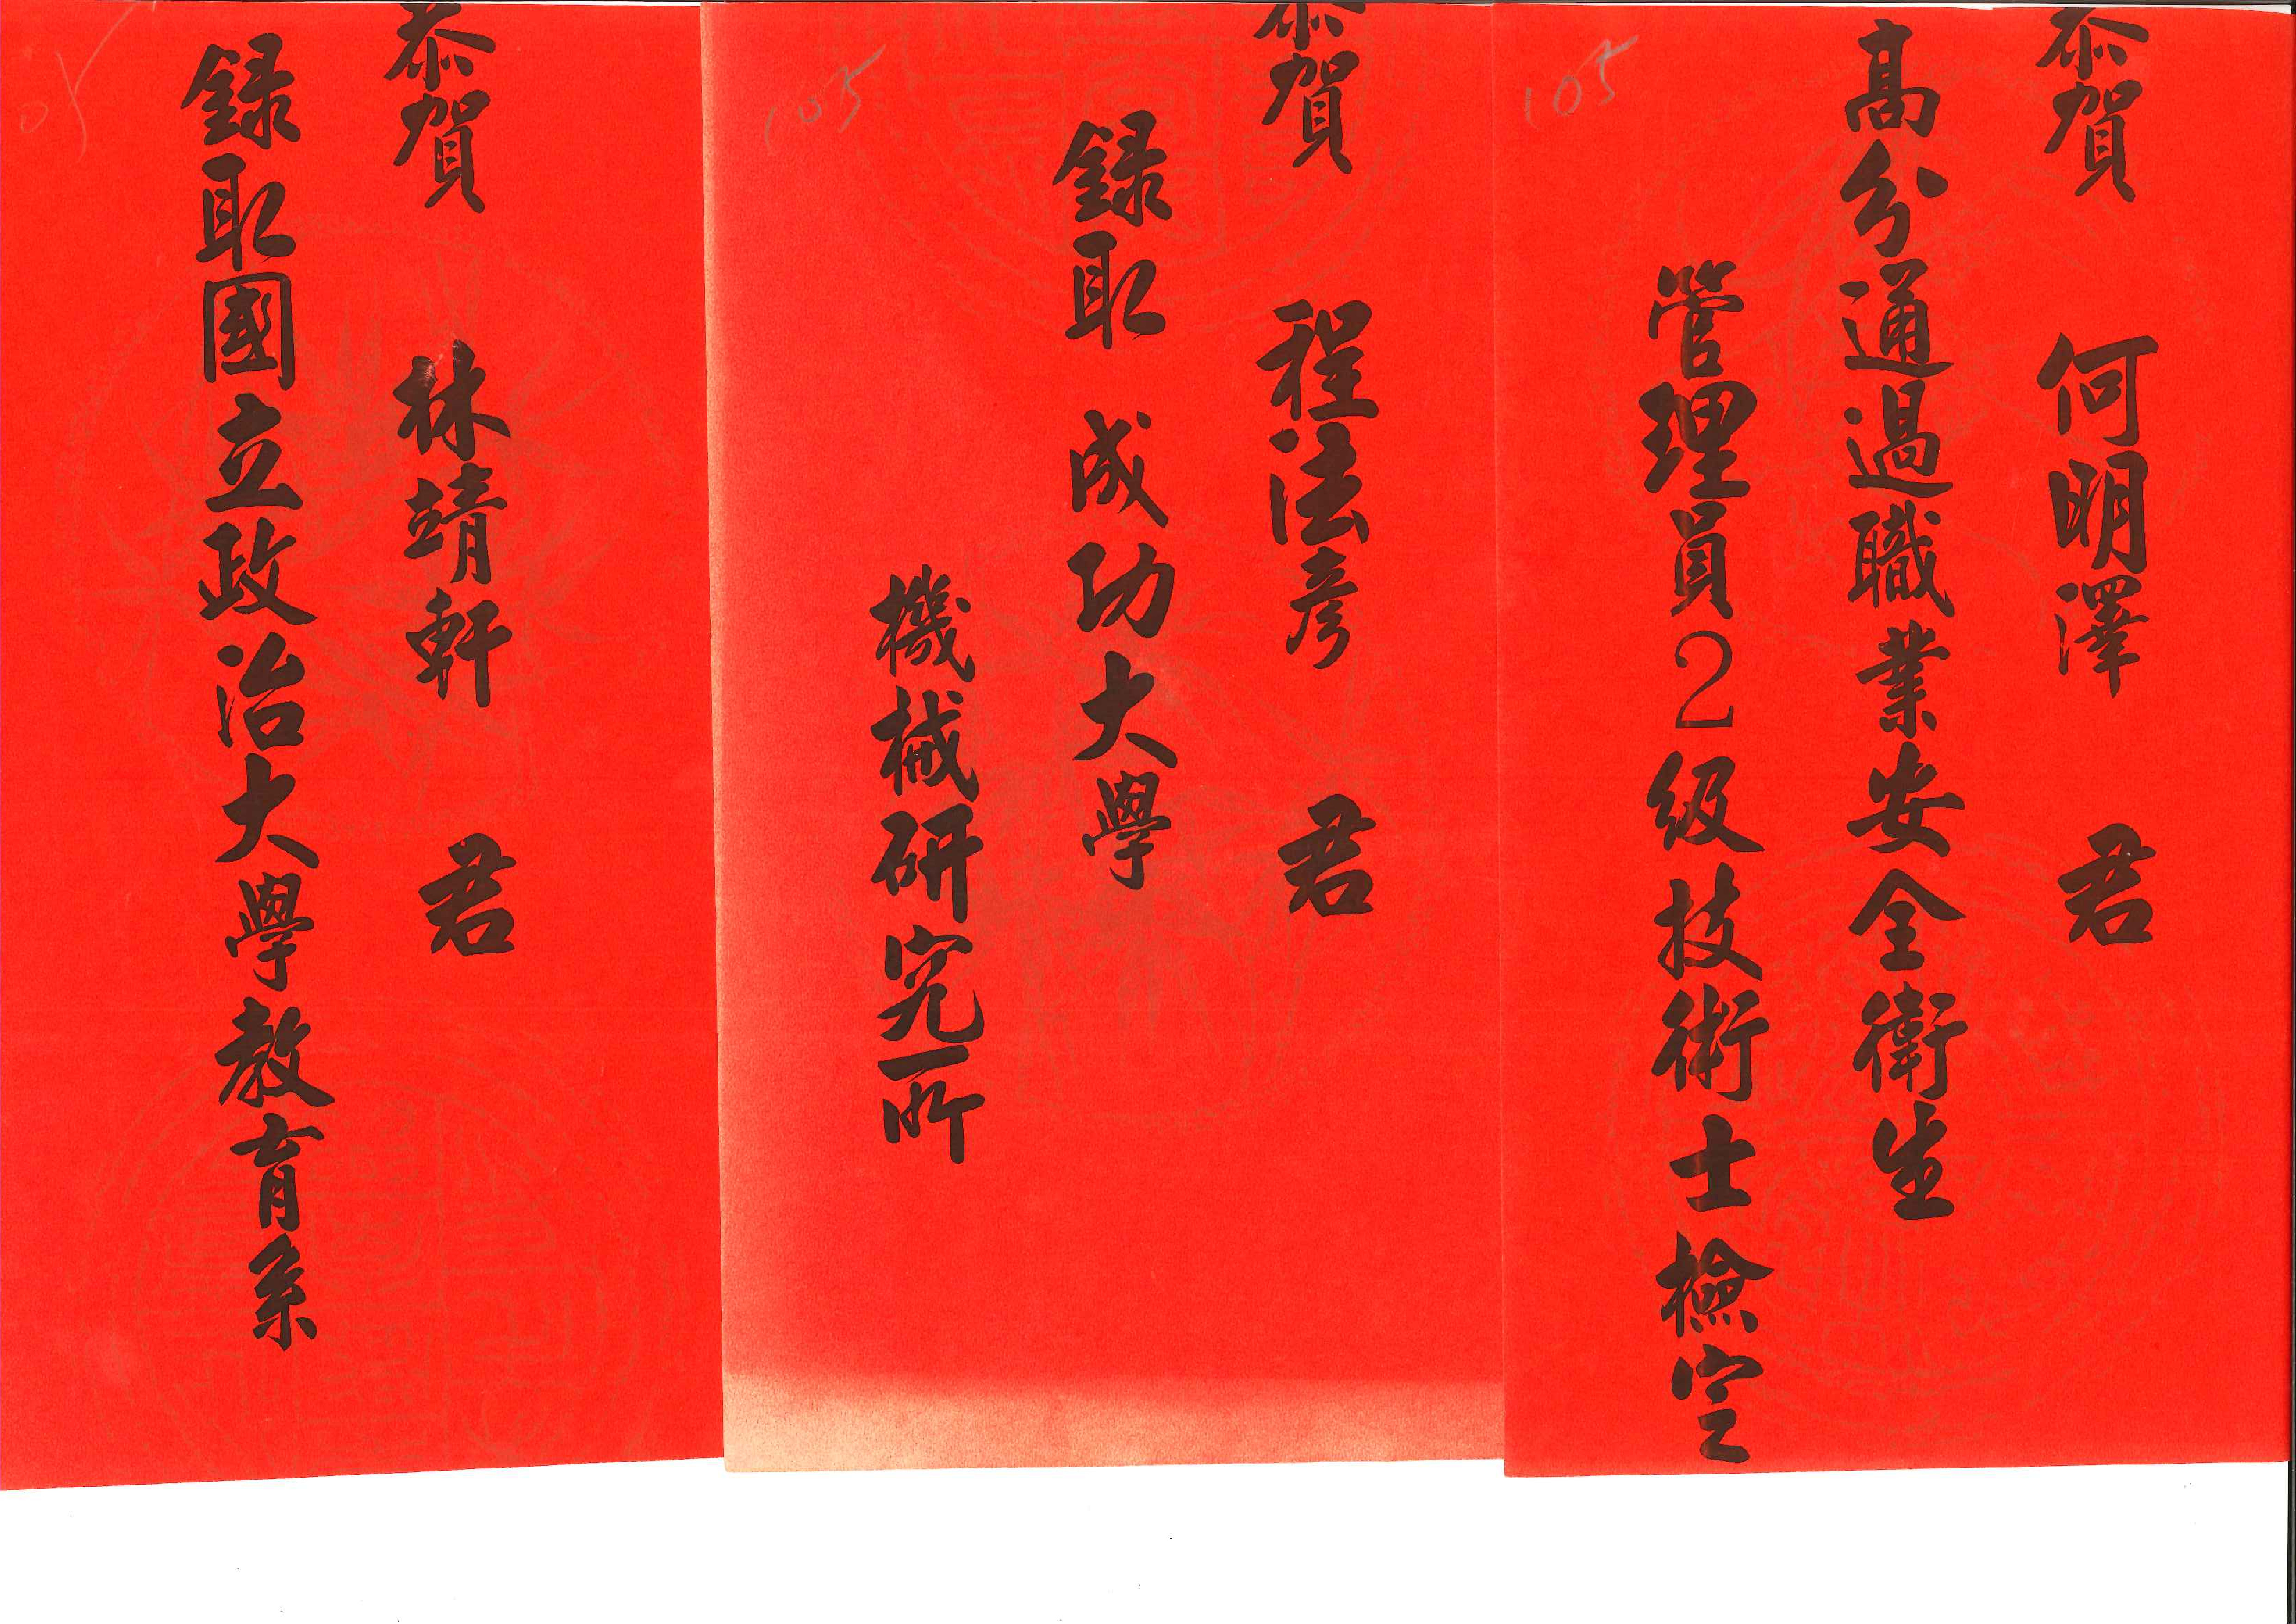 恭賀 何明澤 君
高分通過職業安全衛生
管理員2級技術士檢定
105
恭賀 程法彥 君
錄取 成功大學
機械研究所
105
恭賀 林靖軒 君
錄取國立政治大學教育系
05